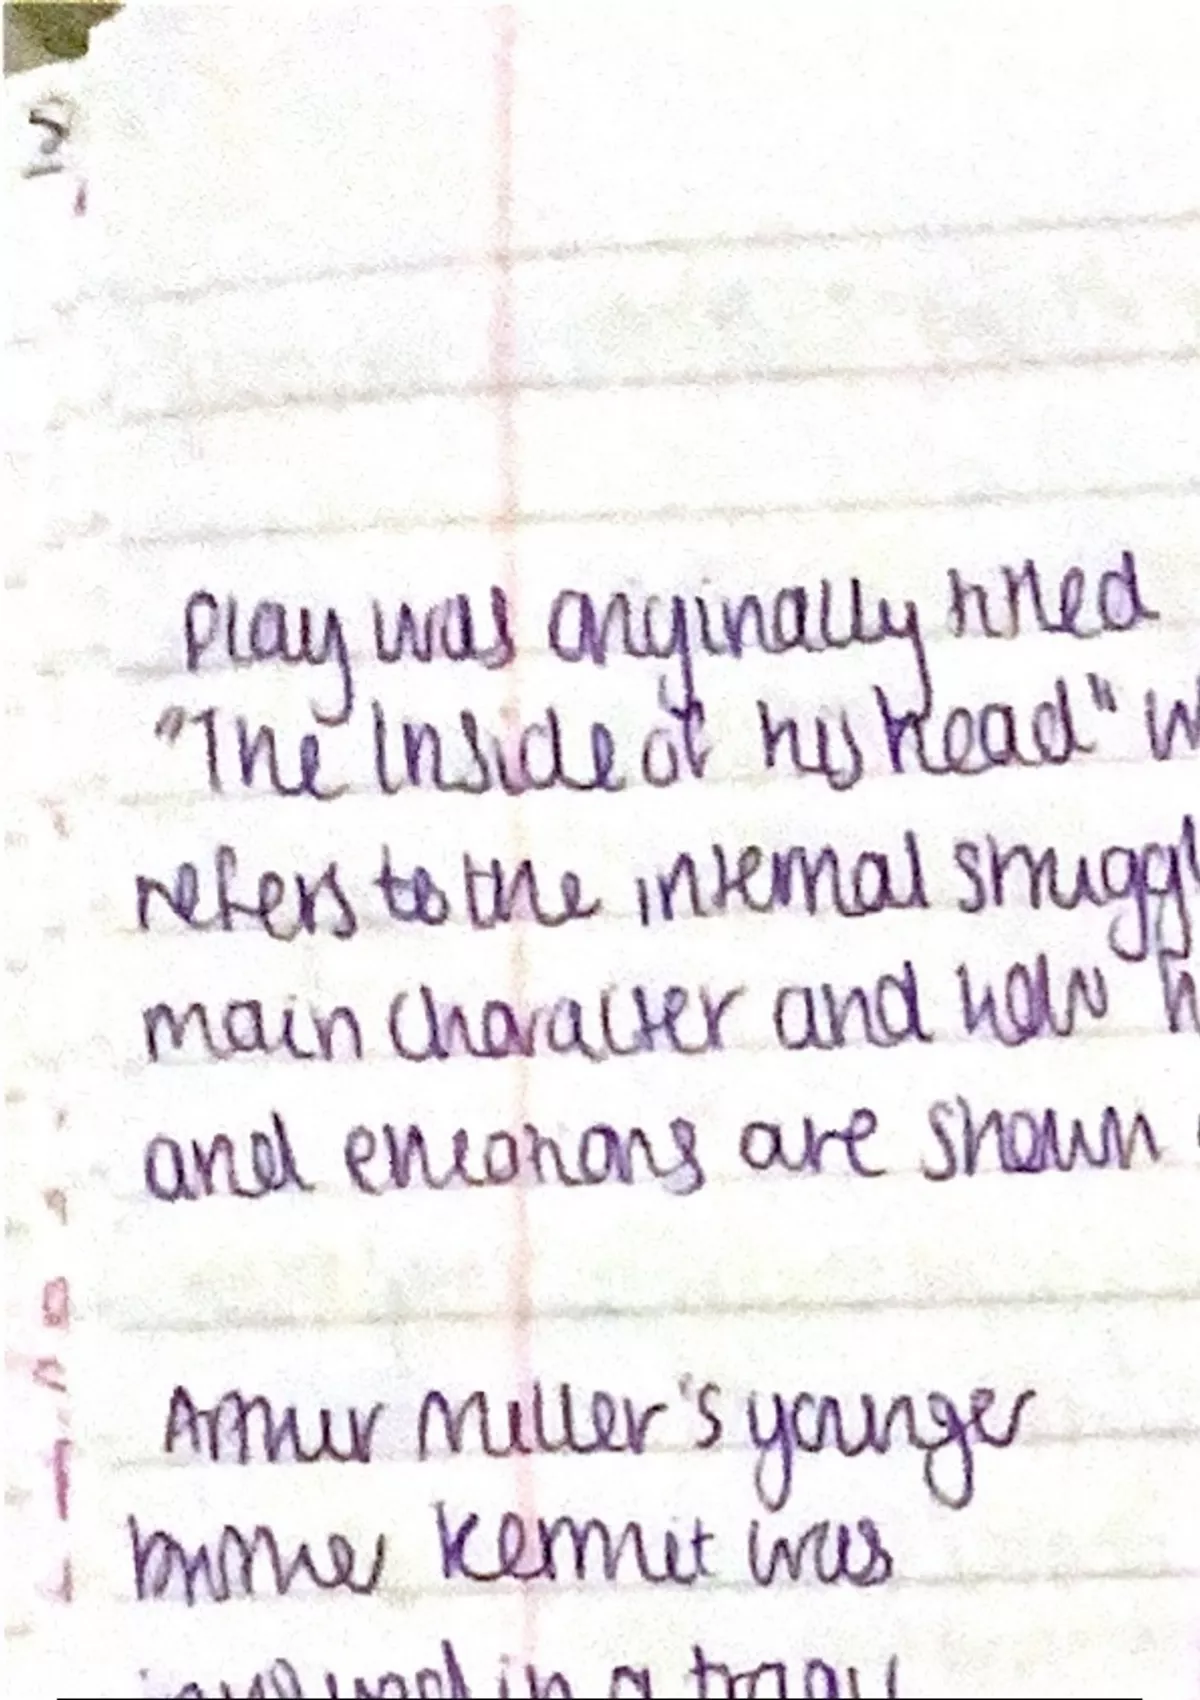 Play was orginally titled
"The Inside of his head"
refers to the internal
main character and how
and emotions are shown
Arthur Miller's younger
brother Kermit was
in a